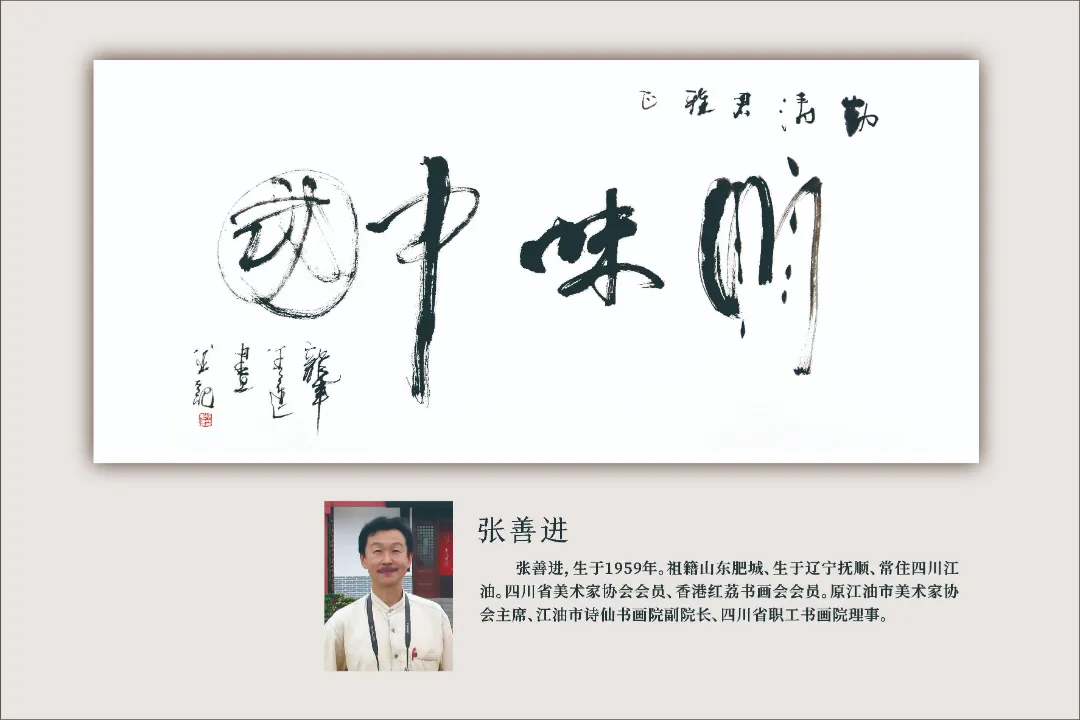 勤涛君雅正
味中
张善进
张善进,生于1959年。祖籍山东肥城、生于辽宁抚顺、常住四川江
油。四川省美术家协会会员、香港红荔书画会会员。原江油市美术家协
会主席、江油市诗仙书画院副院长、四川省职工书画院理事。